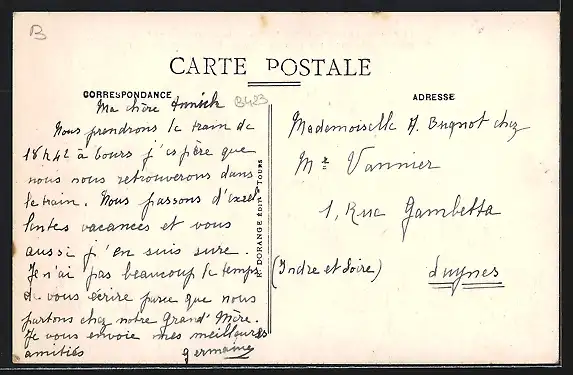 B
CARTE POSTALE
CORRESPONDANCE
ADRESSE
Ma chère Annick
B423
Nous prendrons le train de
18h42 à tours j'espère que
nous nous retrouverons dans
le train. Nous passons d'excel
lentes vacances et vous
aussi j'en suis sure.
Je n'ai pas beaucoup le temps
de vous écrire parce que nous
partons chez notre Grand'Mère.
Je vous envoie mes meilleures
amitiés germaine
DORANGE ÉDIT. TOURS
Mademoiselle A. Bugnot chez
Mr Vannier
1, Rue Gambetta
(Indre et Loire) Luynes